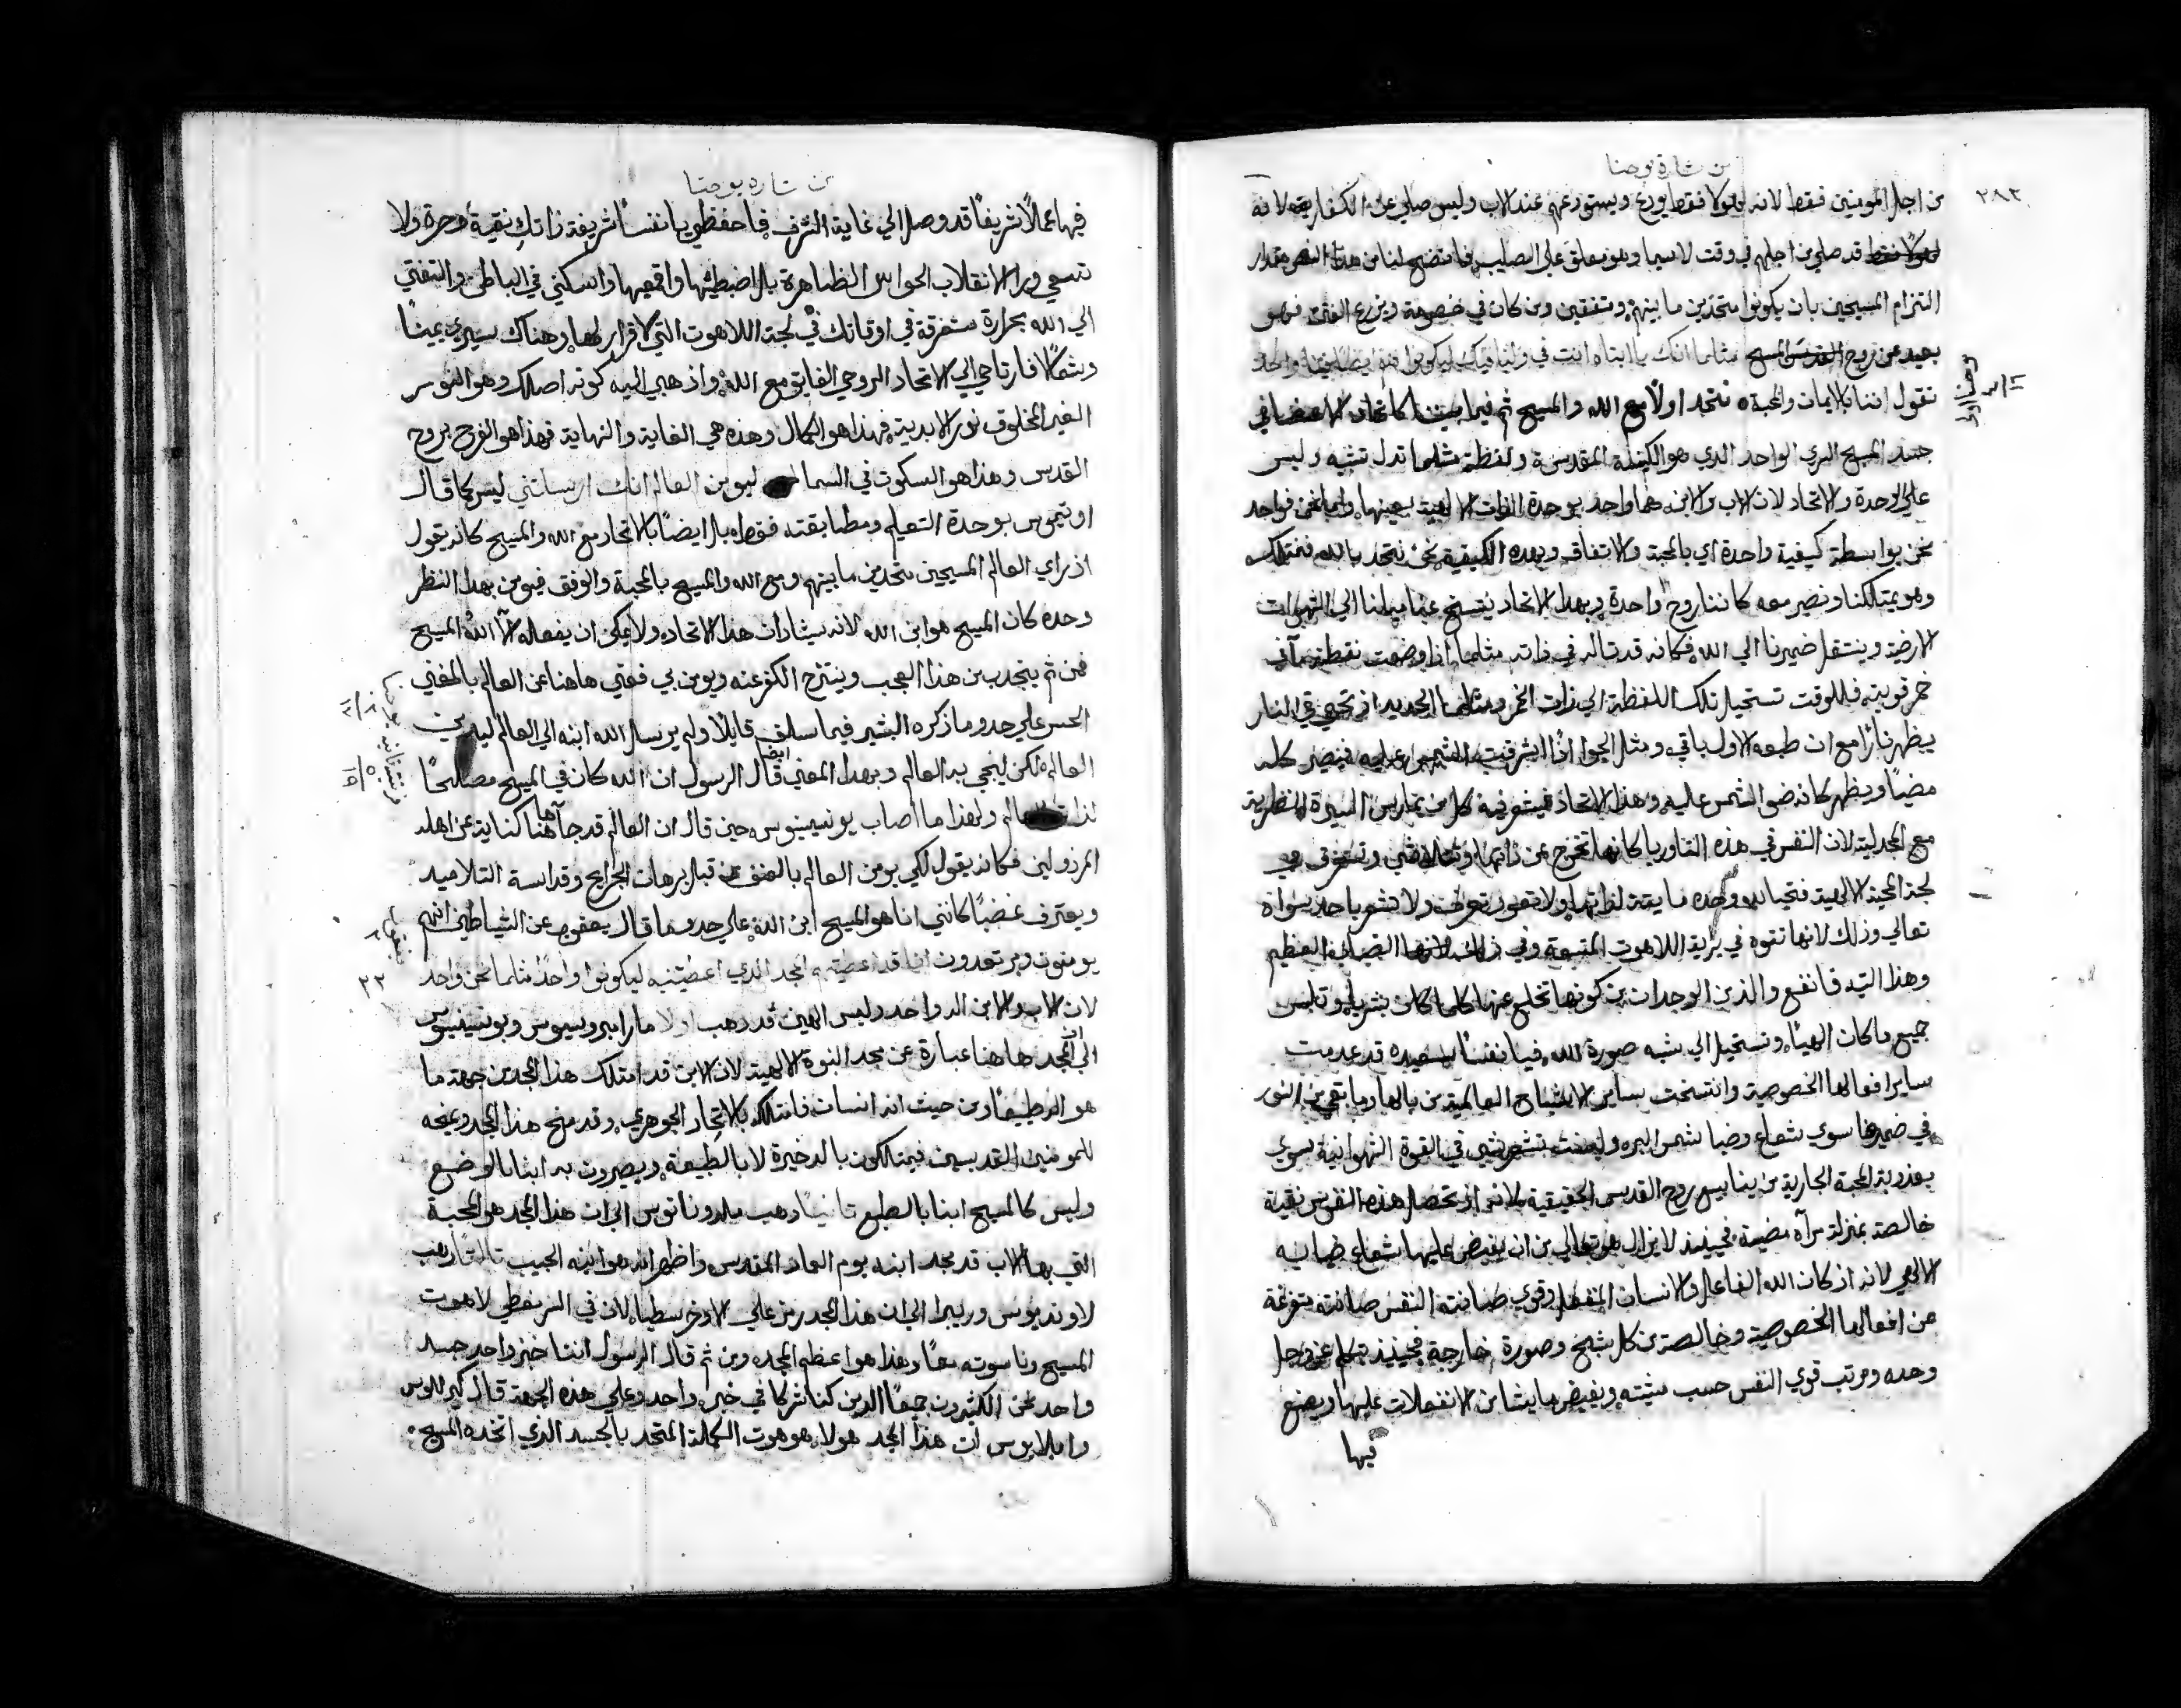 بشارة يوحنا
٢٨٣
من اجل المومنين فقط لانه لهولا فقط يورع ويستودعهم عند الاب وليس صلي عن الكفار بقوله لانه
لهولا فقط قد صلي من اجلهم في وقت لاسيما وهو معلق علي الصليب فاتضح لنا من هذا النص مقدار
التزام المسيحين بان يكونوا متحدين ما بينهم ومتفقين ومن كان في خصومة ويزرع الفتن فهو
بعيد عن روح المسيح مثلما انك يا ابتاه انت في وانا فيك ليكونوا هم ايضا فينا واحد
نقول اننا بالايمان والمحبة نتحد اولًا مع الله والمسيح ثم فيما بيننا كاتحاد الاعضا في
جسد المسيح السري الواحد الذي هو الكنيسة المقدسة ولفظة مثلما تدل تشبيه وليس
علي الوحدة والاتحاد لان الاب والابن هما واحد بوحدة الذات الالهية بعينها واما نحن فواحد
نحن بواسطة كيفية واحدة اي بالمحبة والاتفاق وبهذه الكيفية نحن نتحد بالله نمتلكه
وهو يمتلكنا ونصير معه كاننا روح واحدة وبهذا الاتحاد ينتسخ عنا ميلنا الي الشهوات
الارضية وينتقل ضميرنا الي الله فكانه قد تاله في ذاته مثلما اذا وضعت نقطة ما في
خمر قوية فللوقت تستحيل تلك النقطة الي ذات الخمر ومثلما الحديد اذ تحمي في النار
يظهر نارًا مع ان طبعه الاول باقي ومثل الجو اذا اشرقت الشمس عليه فيصير كله
مضيًا ويظهر كانه ضو الشمس عليه وهذا الاتحاد فيشو فيه كل من يمارس السيرة النظرية
مع المجدلية لان النفس في هذه التاوريا كانها تخرج عن ذاتها وتتلاشي وتستغرق في
لجة المحبة الالهية فتحيا لله وحده مايتة لذاتها ولا تعود تعرف ولا تشعر باحد سواه
تعالي وذلك لانها تتوه في برية اللاهوت المتسعة وفي ذلك لانها الضباب العظيم
وهذا التيه فانفع والذ من الوجدان من كونها تخلع عنها كلما كان بشريا وتلبس
جميع ما كان الهيًا وتستحيل الي شبه صورة الله فيا نفسًا سعيده قد عدمت
ساير افعالها الخصوصية وانتسخت ساير الاشباح العالمية من بالها وما بقي من النور
في ضميرها سوي شعاع وضيا شمس البر ولم تشعر بشي في القوة الشهوانية سوي
بعذوبة المحبة الجارية من ينابيع روح القدس الحقيقية لانه اذ تحصل هذه النفس نقية
خالصة بمنزلة مرآة مضية فحينيذ لا يزال هو تعالي من ان يفيض عليها شعاع ضيايه
الالهي لانه اذ كان الله الفاعل والانسان المنفعل وقوي صانته النفس صامتة متفرغة
من افعالها الخصوصية وخالصة من كل شبح وصورة خارجة فحينيذ يتكلم عز وجل
وحده ومرتب قوي النفس حسب مشيته ويفيض ما يشا من الانفعالات عليها ويصنع
فيها
بشاره يوحنا
فيها اعمالًا شريفًا قد وصل الي غاية الشرف فاحفظي يا نفسًا شريفة ذاتك نقية وحرة ولا
تسعي ورا الانقلاب الحواس الظاهرة بل اضبطيها واقمعيها واسكني في الباطن والتفتي
الي الله بحرارة مستغرقة في اوقاتك في لجة اللاهوت التي لا قرار لها وهناك سيري يمينًا
وشمالًا فارتاحي الي الاتحاد الروحي الفايق مع الله واذهبي اليه كونه اصلك وهو النور
الغير المخلوق نور الابدية فهذا هو الكمال وهذه هي الغاية والنهاية فهذا هو الفرح بروح
القدس وهذا هو السكوت في السما ليومن العالم انك ارسلتني ليس كما قال
اوتيموس بوحدة التعليم ومطابقته فقط بل ايضًا بالاتحاد مع الله والمسيح كانه يقول
اذ راي العالم المسيحين متحدين ما بينهم ومع الله والمسيح بالمحبة والوفق فيومن بهذا النظر
وحده كان المسيح هو ابن الله لانه سيشا دان هذا الاتحاد ولا يمكن ان يفعله الا الله المسيح
فمن ثم يتجدب من هذا العجب وينتزح الكفر عنه ويومن بي ففي هاهنا عن العالم بالمعني
الحسن علي حدو ما ذكره البشير فيما سلف قايلًا ولم يرسل الله ابنه الي العالم ليدين
العالم لكن لينجي به العالم وبهذا المعني ايضا قال الرسول ان الله كان في المسيح مصالحًا
لذاته العالم ولهذا ما اصاب يونسينيوس حين قال ان العالم قد جا هاهنا كناية عن اهله
المرذولين فكانه يقول لكي يومن العالم بالعنف من قبل برهان الجرايح وقداسة التلاميد
ويعترف غضبًا كانني انا هو المسيح ابن الله علي حدو ما قال يعقوب عن الشياطين انهم
يومنون ويرتعدون انا قد اعطيتهم المجد الذي اعطيتنيه ليكونوا واحدًا مثلما نحن واحد
لان الاب والابن اله واحد وليس الهين قد ذهب اولا مارامبروسيوس ويونسينيوس
الي ان المجد هاهنا عبارة عن مجد البنوة الالهية لان الابن قد امتلك هذا المجد من جهة ما
هو اله طبيعًا ومن حيث انه انسان فامتلكه بالاتحاد الجوهري وقد منح هذا المجد ويمنحه
للمومنين القديسين فيمتلكون بالدخيرة لا بالطبيعة ويصيرون به ابنا بالوضع
وليس كالمسيح ابنا بالطبع ثانيًا دهب ملدوناتوس الي ان هذا المجد هو المحبة
التي بها الاب قد مجد ابنه يوم العماد المقدس واظهر انه هو ابنه الحبيب ثالثًا ذهب
لاونديوس وريبرا الي ان هذا المجد رمز علي الاوخرسطيا لان في السر معطي لاهوت
المسيح وناسوته معًا وهذا هو اعظم المجد ومن ثم قال الرسول اننا خبز واحد جسد
واحد نحن الكثيرون جميعًا الدين كنا شركا في خبز واحد وعلي هذه الجهة قال كيرللوس
وايلاريوس ان هذا المجد هولا هو هوت الكلمة المتحد بالجسد الذي اتخده المسيح
يوحنا
٣ / ١٧
قرنتيه ثانيه
٥ / ١٩
يعقوب
٢
٢٢